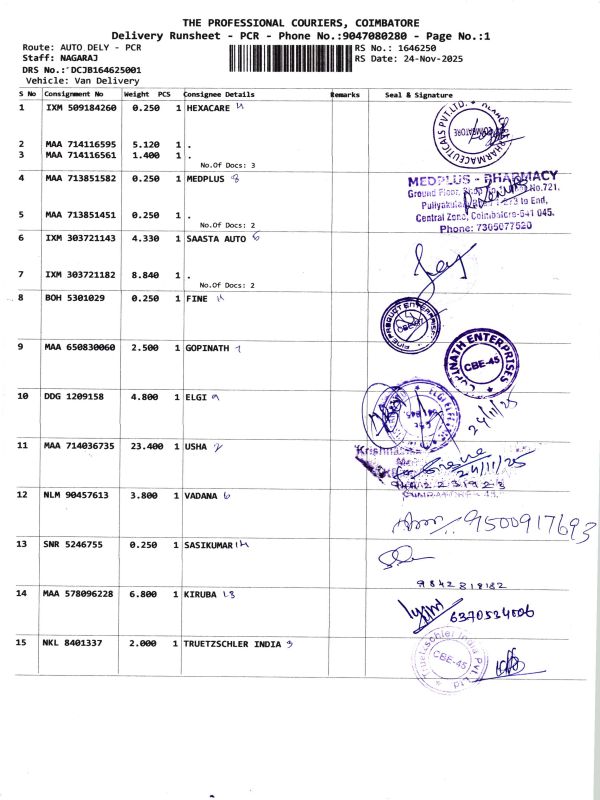 THE PROFESSIONAL COURIERS, COIMBATORE
Delivery Runsheet - PCR - Phone No.:9047080280 - Page No.:1
Route: AUTO DELY - PCR
RS No.: 1646250
Staff: NAGARAJ
RS Date: 24-Nov-2025
DRS No.: DCJB164625001
Vehicle: Van Delivery
S No Consignment No Weight PCS Consignee Details Remarks Seal & Signature
1 IXM 509184260 0.250 1 HEXACARE
PHARMACEUTICALS PVT.LTD.
COIMBATORE
2 MAA 714116595 5.120 1 .
3 MAA 714116561 1.400 1 .
No.Of Docs: 3
4 MAA 713851582 0.250 1 MEDPLUS 8
MEDPLUS - PHARMACY
Ground Floor, Shop No.721,
Puliyakulam to End,
Central Zone, Coimbatore-641 045.
Phone: 7305077520
5 MAA 713851451 0.250 1 .
No.Of Docs: 2
6 IXM 303721143 4.330 1 SAASTA AUTO 6
7 IXM 303721182 8.840 1 .
No.Of Docs: 2
8 BOH 5301029 0.250 1 FINE
9 MAA 650830060 2.500 1 GOPINATH 7
GOPINATH ENTERPRISES
CBE-45
10 DDG 1209158 4.800 1 ELGI 9
24/11/25
11 MAA 714036735 23.400 1 USHA 2
Krishna
24/11/25
12 NLM 90457613 3.800 1 VADANA 6
9500917693
13 SNR 5246755 0.250 1 SASIKUMAR 14
9842318182
14 MAA 578096228 6.800 1 KIRUBA 13
6370534006
15 NKL 8401337 2.000 1 TRUETZSCHLER INDIA 3
Truetzschler India Pvt. Ltd
CBE-45